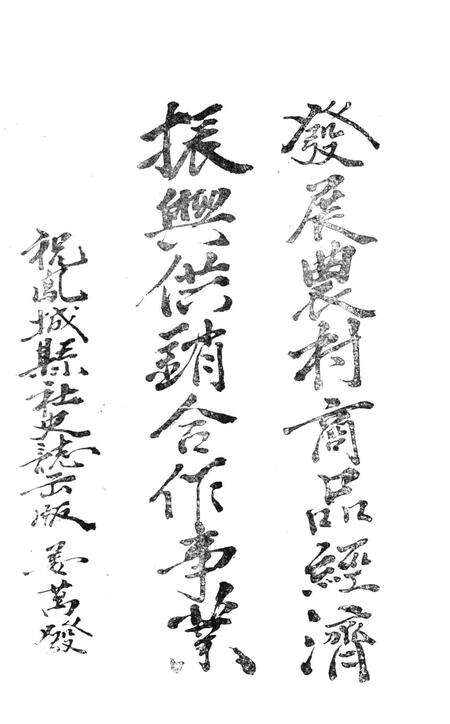 發展農村商品經濟
振興供銷合作事業
祝鳳城縣社史誌出版 姜萬發